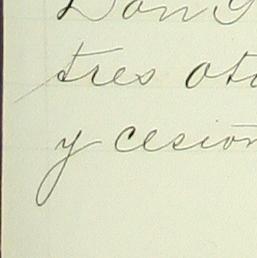 Don G
tres oto
y cesion